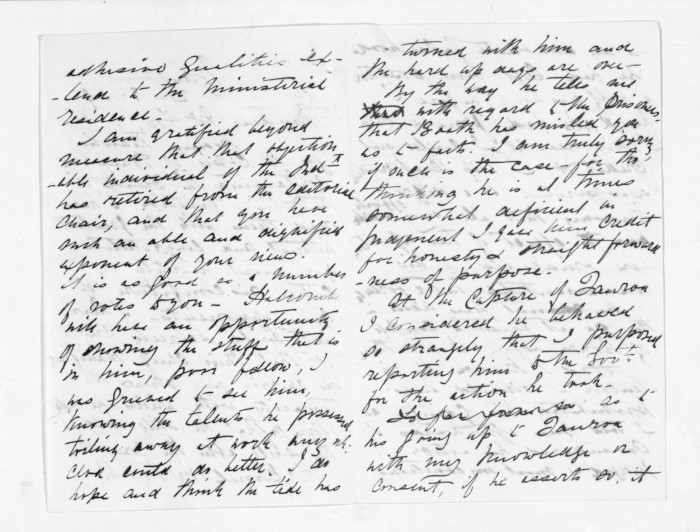 adhesive qualities ex-
-tend to the Ministerial
residence -
I am gratified beyond
measure that that objection-
-able individual of the Indt
has retired from the editorial
chair, and that you have
such an able and dignified
exponent of your views.
it is as good as a number
of votes to you - Halcombe
will have an opportunity
of showing the stuff that is
in him, poor fellow, I
was grieved to see him,
knowing the talents he possessed
toiling away at work any
clod could do better. I do
hope and think the tide has
turned with him and
the hard up days are over -
By the way he tells me
with regard to the Prisoners
that Booth has misled you
as to facts. I am truly sorry
if such is the case - for tho'
thinking he is at times
somewhat deficient in
judgement I gave him credit
for honesty & straightforward
-ness of purpose.
At the capture of Tauroa
I considered he behaved
so strangely that I purposed
reporting him to the Govt.
for the action he took -
so as to
his going up to Tauroa
with my knowledge or
consent, if he asserts so, it